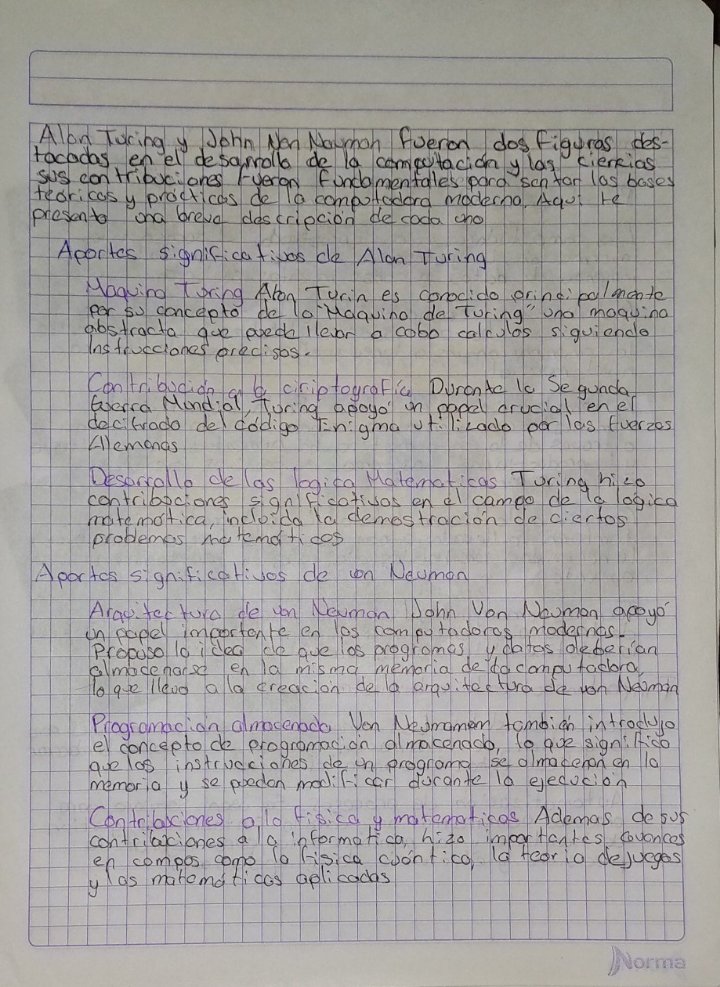 Alan Turing y John Von Nauman fueron dos figuras des-
tacadas en el desarrollo de la computación y las ciencias
sus contribuciones fueron fundamentales para santar las bases
teoricas y prácticas de la computadora moderna. Aqui te
presento una breve descripción de cada uno
Aportes significativos de Alan Turing
Maquina Turing Alan Turin es conocido principalmente
por su concepto de la Maquina de Turing" una maquina
abstracta que puede llevar a cabo calculos siguiendo
Instrucciones precisas.
Contribución a la criptografia Durante la Segunda
Guerra Mundial, Turing apoyo un papel crucial en el
decifrado del código Enigma utilizado por las fuerzas
Alemanas
Desarrollo de las logica Matematicas Turing hizo
contribuciones significativas en el campo de la logica
matematica, incluida la demostración de ciertos
problemas matemáticos
Aportes significativos de von Neuman
Arquitectura de von Neuman John Von Neuman apoyó
un papel importante en las computadoras modernas.
Propuso la idea de que los programas y datos deberian
almacenarse en la misma memoria de la computadora,
lo que llevo a la creacion de la arquitectura de von Neuman
Programación almacenada Von Neumamn tambien introdujo
el concepto de programación almacenada, lo que significa
que las instrucciones de un programa se almacenan en la
memoria y se puedan modificar durante la ejecución
Contribuciones a la fisica y matematicas Ademas de sus
contribuciones a la informatica, hizo importantes
en campos como la fisica cuántica, la teoria de juegos
y las matemáticas aplicadas
Norma